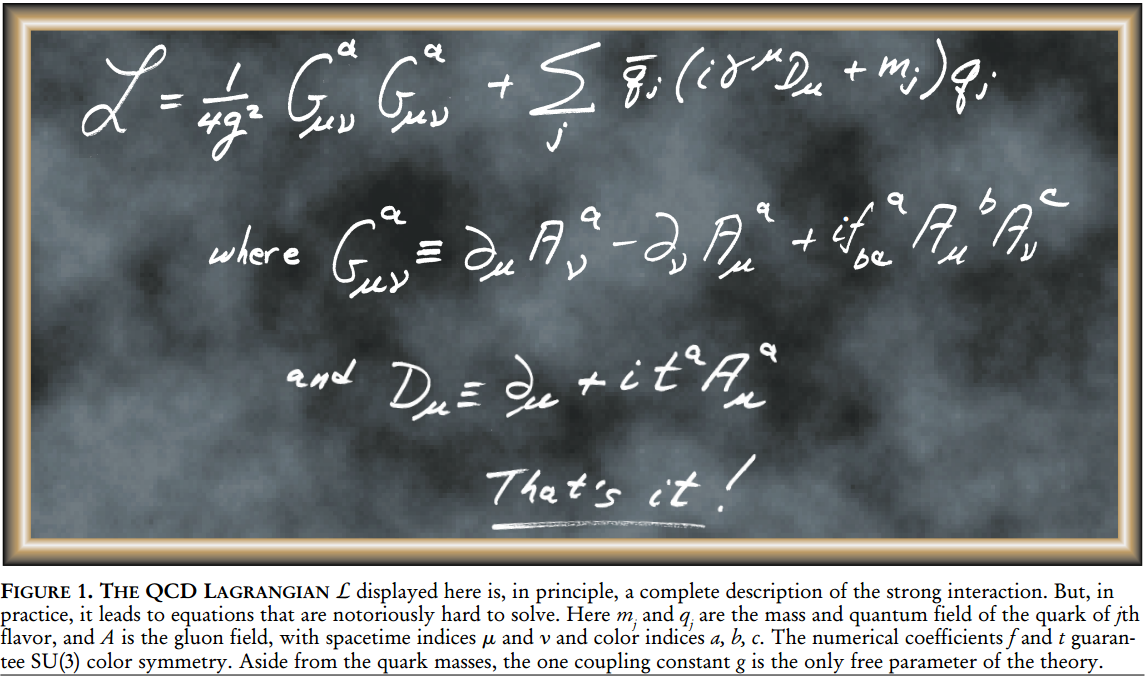 ℒ = 1/4g² Gᵃμν Gᵃμν + Σj q̄j (iγ^μ Dμ + mj) qj
where Gᵃμν ≡ ∂μ Aνᵃ − ∂ν Aμᵃ + i f_baᵃ Aμᵇ Aνᶜ
and Dμ ≡ ∂μ + i tᵃ Aμᵃ
That's it!
FIGURE 1. THE QCD LAGRANGIAN ℒ displayed here is, in principle, a complete description of the strong interaction. But, in
practice, it leads to equations that are notoriously hard to solve. Here mj and qj are the mass and quantum field of the quark of jth
flavor, and A is the gluon field, with spacetime indices μ and ν and color indices a, b, c. The numerical coefficients f and t guaran-
tee SU(3) color symmetry. Aside from the quark masses, the one coupling constant g is the only free parameter of the theory.